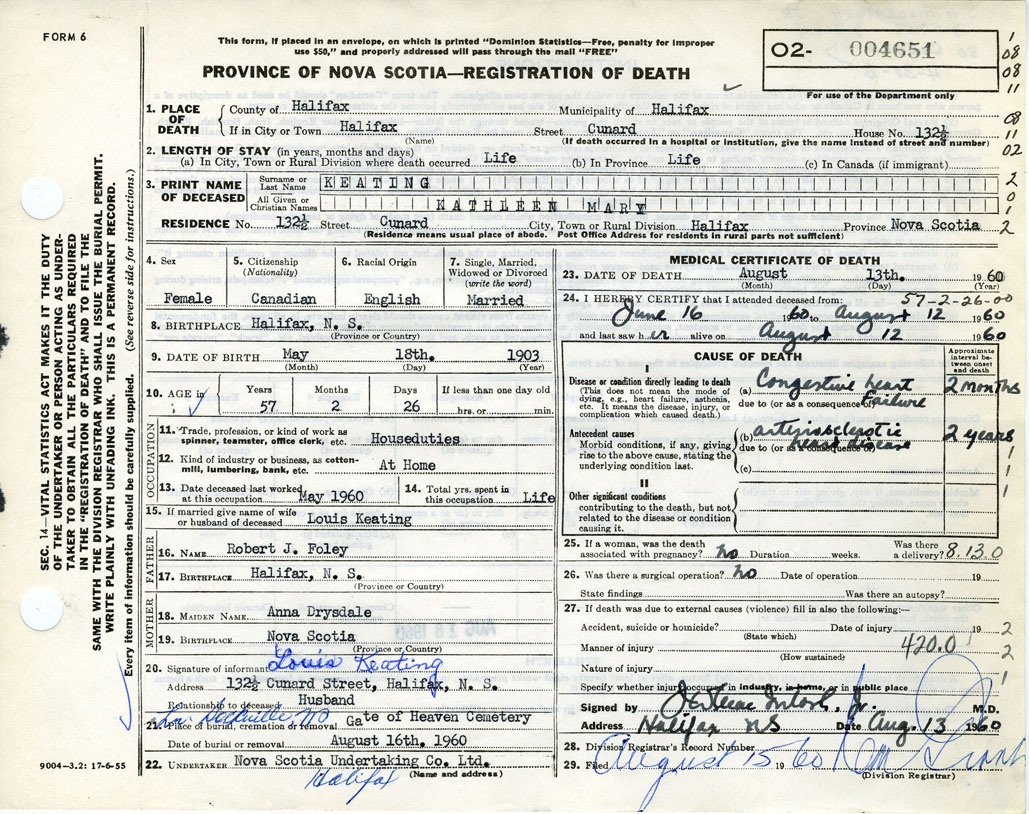 FORM 6
This form, if placed in an envelope, on which is printed "Dominion Statistics—Free, penalty for improper
use $50," and properly addressed will pass through the mail "FREE"
PROVINCE OF NOVA SCOTIA—REGISTRATION OF DEATH
O2- 004651
For use of the Department only
1
08
08
11
1. PLACE OF DEATH
County of Halifax Municipality of Halifax
If in City or Town Halifax Street Cunard House No. 132½
(Name) (If death occurred in a hospital or institution, give the name instead of street and number)
08
11
02
2. LENGTH OF STAY (in years, months and days)
(a) In City, Town or Rural Division where death occurred Life (b) In Province Life (c) In Canada (if immigrant)
3. PRINT NAME OF DECEASED
Surname or Last Name KEATING
All Given or Christian Names KATHLEEN MARY
2
0
1
2
RESIDENCE No. 132½ Street Cunard City, Town or Rural Division Halifax Province Nova Scotia
(Residence means usual place of abode. Post Office Address for residents in rural parts not sufficient)
4. Sex
Female
5. Citizenship (Nationality)
Canadian
6. Racial Origin
English
7. Single, Married, Widowed or Divorced (write the word)
Married
8. BIRTHPLACE Halifax, N. S.
(Province or Country)
9. DATE OF BIRTH May 18th. 1903
(Month) (Day) (Year)
10. AGE in
Years Months Days If less than one day old
57 2 26 hrs. or min.
OCCUPATION
11. Trade, profession, or kind of work as
spinner, teamster, office clerk, etc. Houseduties
12. Kind of industry or business, as cotton-
mill, lumbering, bank, etc. At Home
13. Date deceased last worked
at this occupation May 1960
14. Total yrs. spent in
this occupation Life
15. If married give name of wife
or husband of deceased Louis Keating
FATHER
16. NAME Robert J. Foley
17. BIRTHPLACE Halifax, N. S.
(Province or Country)
MOTHER
18. MAIDEN NAME Anna Drysdale
19. BIRTHPLACE Nova Scotia
(Province or Country)
20. Signature of informant Louis Keating
Address 132½ Cunard Street, Halifax, N. S.
Relationship to deceased Husband
21. Place of burial, cremation or removal Gate of Heaven Cemetery
Date of burial or removal August 16th. 1960
22. UNDERTAKER Nova Scotia Undertaking Co. Ltd.
Halifax (Name and address)
MEDICAL CERTIFICATE OF DEATH
23. DATE OF DEATH August 13th. 1960
(Month) (Day) (Year)
24. I HEREBY CERTIFY that I attended deceased from: 57-2-26-00
June 16 1960 to August 12 1960
and last saw her alive on August 12 1960
CAUSE OF DEATH
Approximate interval between onset and death
I
Disease or condition directly leading to death
(This does not mean the mode of
dying, e.g., heart failure, asthenia,
etc. It means the disease, injury, or
complication which caused death.)
(a) Congestive heart failure 2 months
due to (or as a consequence of)
Antecedent causes
Morbid conditions, if any, giving
rise to the above cause, stating the
underlying condition last.
(b) arteriosclerotic heart disease 2 years
due to (or as a consequence of)
(c)
1
1
1
II
Other significant conditions
contributing to the death, but not
related to the disease or condition
causing it.
25. If a woman, was the death
associated with pregnancy? no Duration weeks. Was there a delivery? 8.13.0
26. Was there a surgical operation? no Date of operation 19
State findings Was there an autopsy?
27. If death was due to external causes (violence) fill in also the following:—
Accident, suicide or homicide? Date of injury 19
(State which)
2
Manner of injury 420.0
(How sustained)
1
2
Nature of injury
Specify whether injury occurred in industry, in home, or in public place
Signed by M.D.
Address Halifax NS Date Aug. 13 1960
28. Division Registrar's Record Number
29. Filed August 15 1960
(Division Registrar)
SEC. 14—VITAL STATISTICS ACT MAKES IT THE DUTY
OF THE UNDERTAKER OR PERSON ACTING AS UNDER-
TAKER TO OBTAIN ALL THE PARTICULARS REQUIRED
IN THE "REGISTRATION OF DEATH" AND TO FILE THE
SAME WITH THE DIVISION REGISTRAR WHO SHALL ISSUE THE BURIAL PERMIT.
WRITE PLAINLY WITH UNFADING INK. THIS IS A PERMANENT RECORD.
Every item of information should be carefully supplied. (See reverse side for instructions.)
9004—3.2: 17-6-55